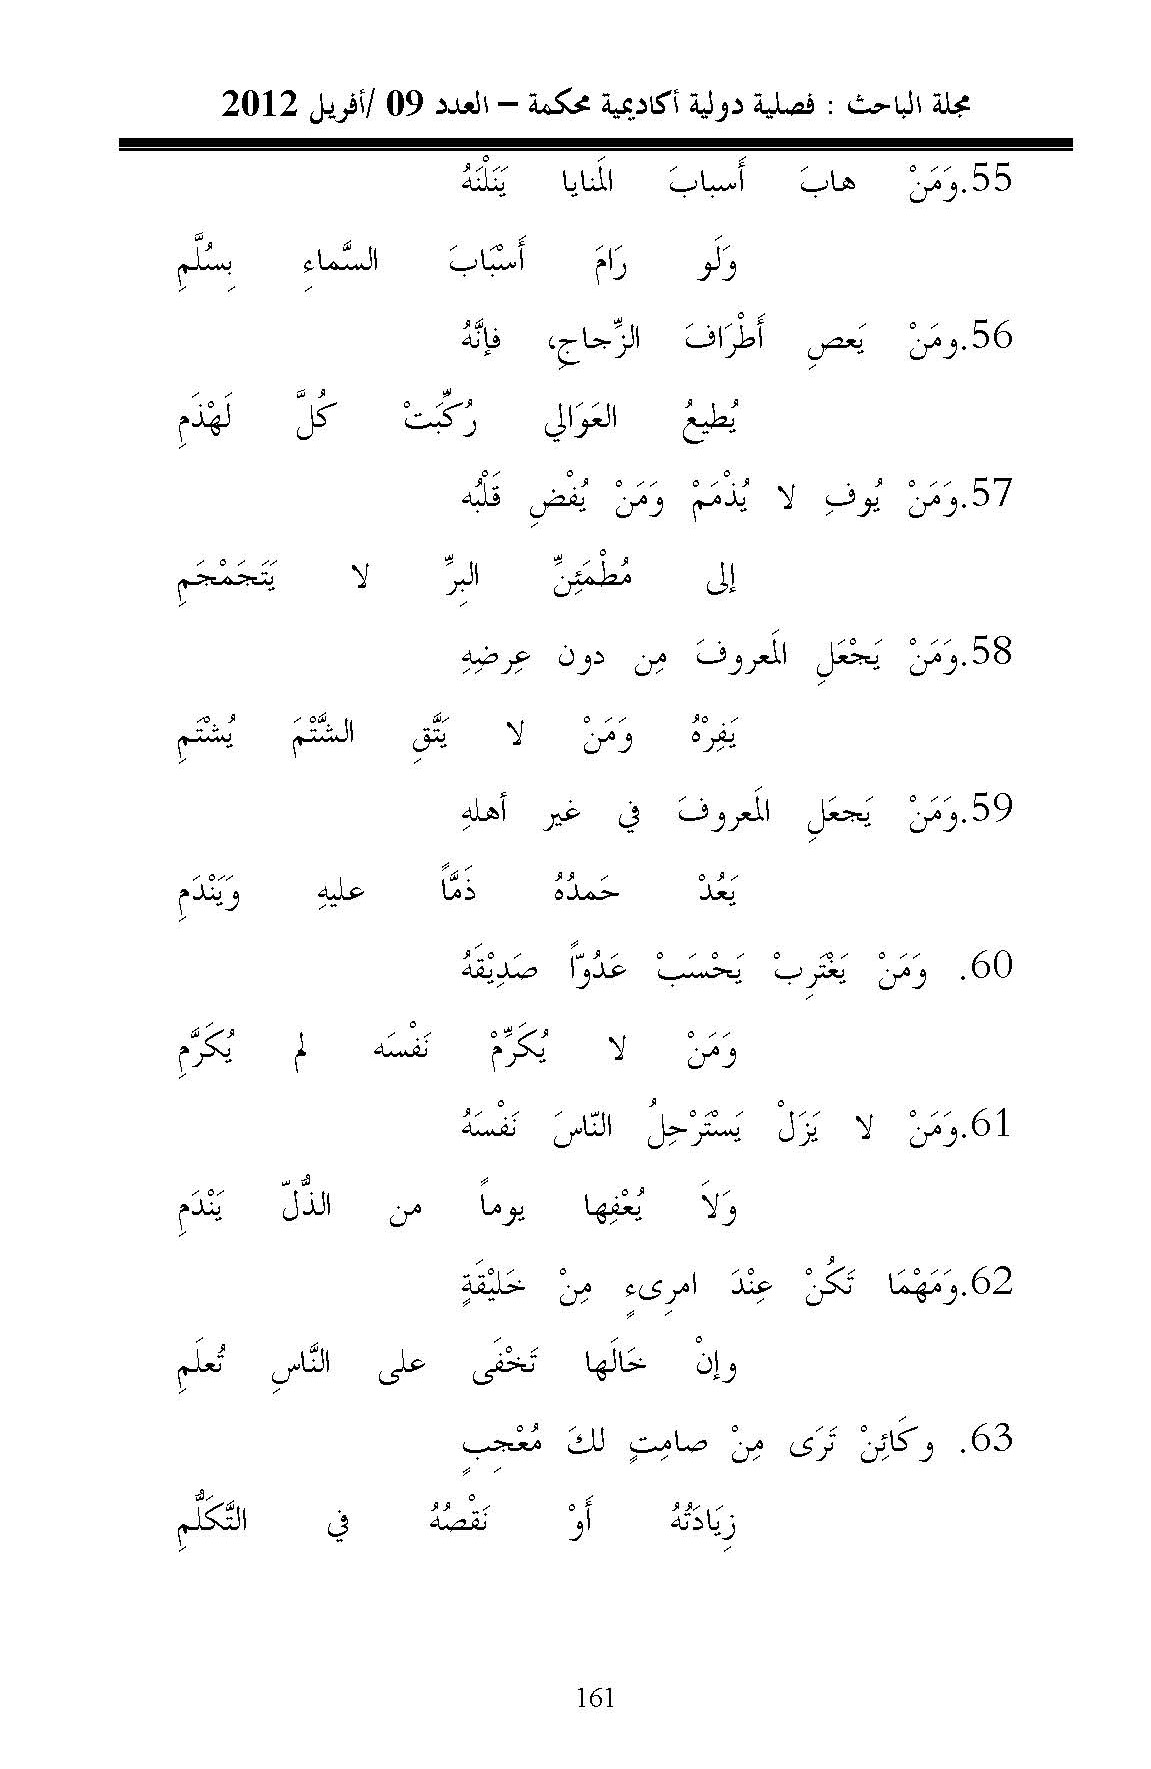 مجلة الباحث : فصلية دولية أكاديمية محكمة – العدد 09 /أفريل 2012
55.وَمَنْ هابَ أَسبابَ المَنايا يَنَلْنَهُ
وَلَو رَامَ أَسْبَابَ السَّماءِ بِسُلَّمِ
56.ومَنْ يَعصِ أَطْرَافَ الزِّجاجِ، فإنَّهُ
يُطيعُ العَوَالي رُكِّبَتْ كُلَّ لَهْذَمِ
57.وَمَنْ يُوفِ لا يُذْمَمْ وَمَنْ يُفْضِ قَلْبُه
إلى مُطْمَئِنِّ البِرِّ لا يَتَجَمْجَمِ
58.وَمَنْ يَجْعَلِ المَعروفَ مِن دون عِرضِهِ
يَفِرْهُ وَمَنْ لا يَتَّقِ الشَّتْمَ يُشْتَمِ
59.وَمَنْ يَجعَلِ المَعروفَ في غير أهلهِ
يَعُدْ حَمدُهُ ذَمَّاً عليهِ وَيَنْدَمِ
60. وَمَنْ يَغْتَرِبْ يَحْسَبْ عَدُوّاً صَدِيْقَهُ
وَمَنْ لا يُكَرِّمْ نَفْسَه لم يُكَرَّمِ
61.وَمَنْ لا يَزَلْ يَسْتَرْحِلُ النّاسَ نَفْسَهُ
وَلاَ يُعْفِها يوماً من الذُّلّ يَنْدَمِ
62.وَمَهْمَا تَكُنْ عِنْدَ امرِىءٍ مِنْ خَلِيْقَةٍ
وإنْ خَالَها تَخْفَى على النَّاسِ تُعلَمِ
63. وكَائِنْ تَرَى مِنْ صامِتٍ لكَ مُعْجِبٍ
زِيَادَتُهُ أَوْ نَقْصُهُ في التَّكَلُّمِ
161